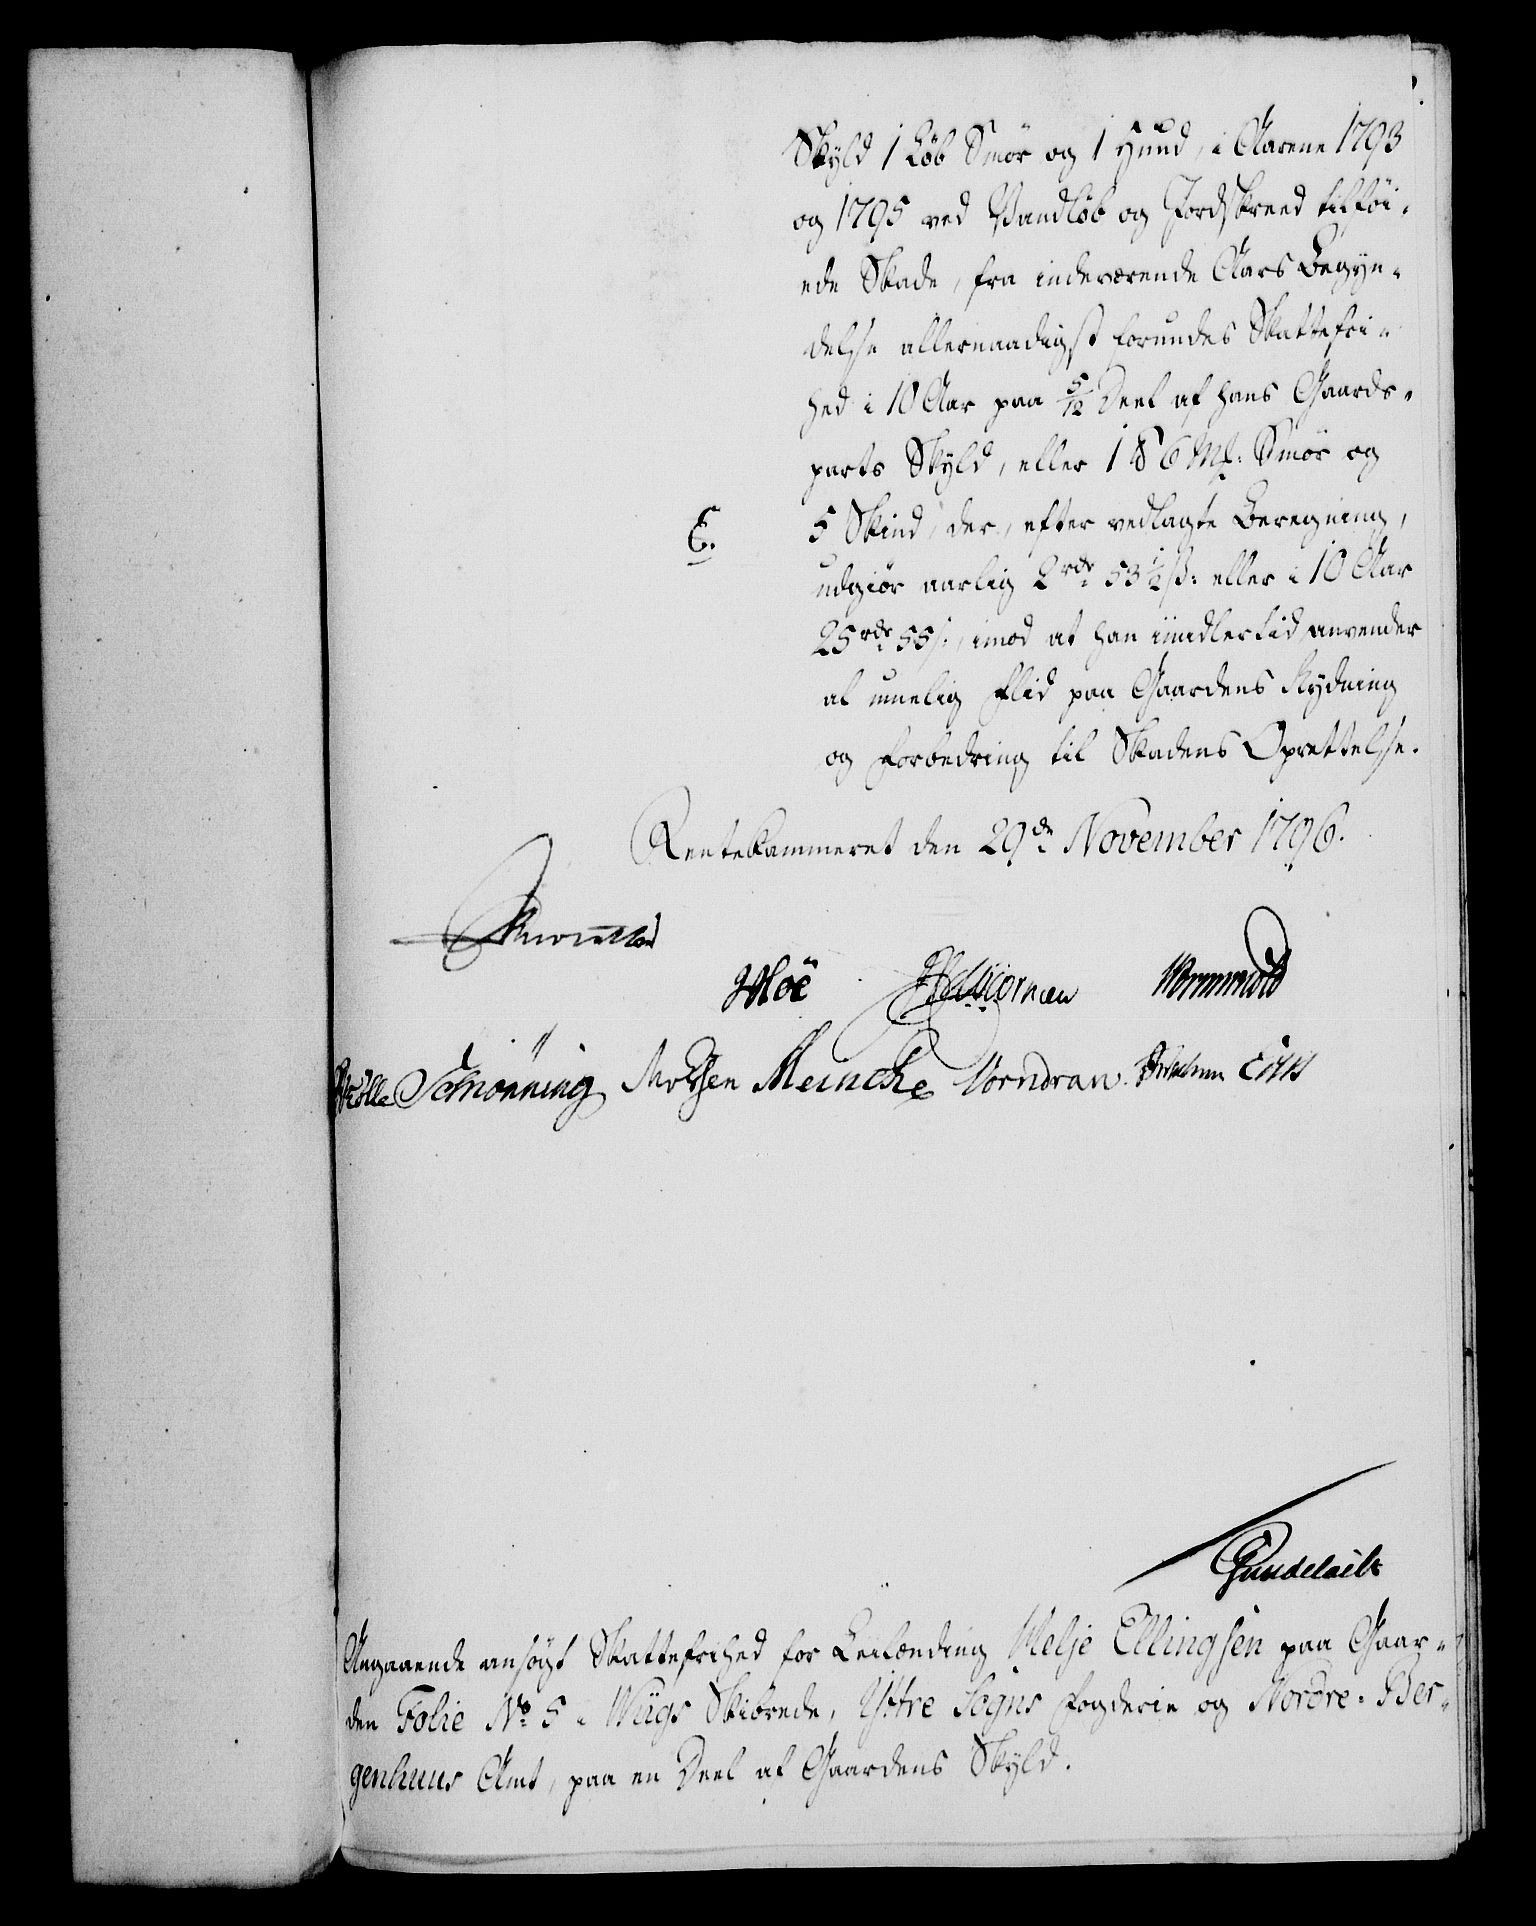 Skyld 1 Løb Smör og 1 Huud, i Aarene 1793
og 1795 ved Vandløb og Jordskreed tilføi-
ede Skade, fra indeværende Aars Begyn-
delse allernaadigst forundes Skattefri-
hed i 10 Aar paa 5/12 Deel af hans Gaards-
parts Skyld, eller 1 ℔ 6 Mk: Smör og
E. 5 Skind, der, efter vedlagte Beregning,
udgiör aarlig 2 rdr 53 1/2 ß: eller i 10 Aar
25 rdr 55 ß., imod at han imidlertid anvender
al muelig Flid paa Gaardens Rydning
og Forbedring til Skadens Oprettelse.
Rentekammeret den 29de November 1796.
Moë Wormwold
Schönning Meincke Vorndran
Gundelach
Angaaende ansøgt Skattefrihed for Leilænding Melje Ellingsen paa Gaar-
den Folie No. 5 i Wiigs Skibrede, Yttre Sogns Fogderie og Nordre-Ber-
genhuus Amt, paa en Deel af Gaardens Skyld.